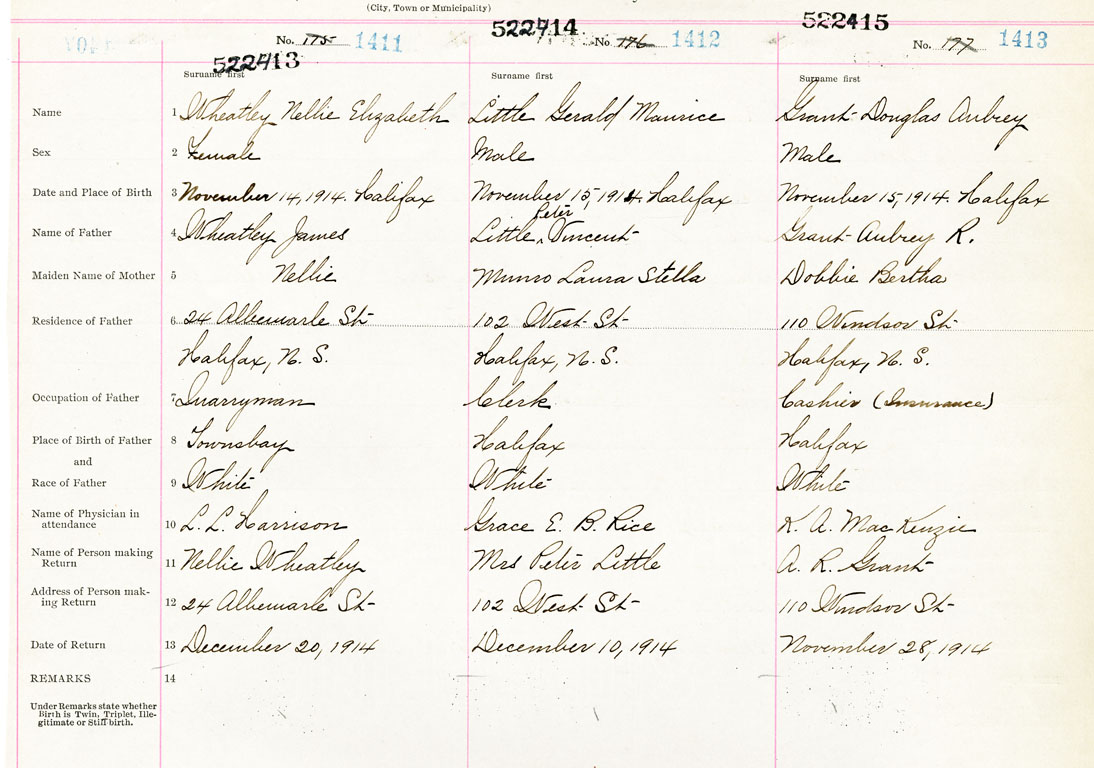 (City, Town or Municipality)
522413 522414 522415
No. 175 1411 No. 176 1412 No. 177 1413
Surname first Surname first Surname first
Name 1 Wheatley Nellie Elizabeth Little Gerald Maurice Grant Douglas Aubrey
Sex 2 Female Male Male
Date and Place of Birth 3 November 14, 1914. Halifax November 15, 1914. Halifax November 15, 1914. Halifax
Name of Father 4 Wheatley James Little Peter Vincent Grant Aubrey R.
Maiden Name of Mother 5 Nellie Munro Laura Stella Dobbie Bertha
Residence of Father 6 24 Albemarle St 102 West St 110 Windsor St
Halifax, N. S. Halifax, N. S. Halifax, N. S.
Occupation of Father 7 Quarryman Clerk Cashier (Insurance)
Place of Birth of Father 8 Townsbay Halifax Halifax
and
Race of Father 9 White White White
Name of Physician in
attendance 10 L. L. Harrison Grace E. B. Rice K. A. MacKenzie
Name of Person making
Return 11 Nellie Wheatley Mrs Peter Little A. R. Grant
Address of Person mak-
ing Return 12 24 Albemarle St 102 West St 110 Windsor St
Date of Return 13 December 20, 1914 December 10, 1914 November 28, 1914
REMARKS 14
Under Remarks state whether
Birth is Twin, Triplet, Ille-
gitimate or Still-birth.